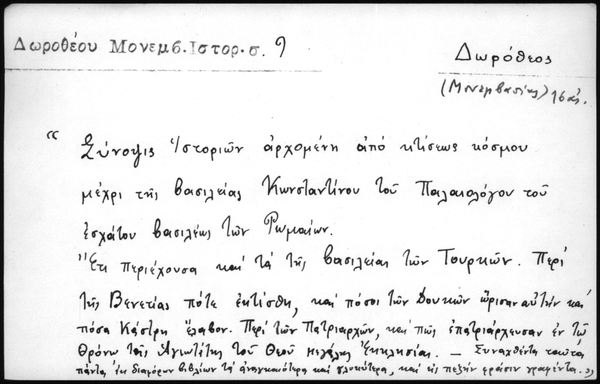 Δωροθέου Μονεμβ. Ιστορ. σ. 9
Δωρόθεος
(Μονεμβασίας) 16 αἰ.
“ Σύνοψις Ἱστοριῶν ἀρχομένη ἀπό κτίσεως κόσμου
μέχρι τῆς βασιλείας Κωνσταντίνου τοῦ Παλαιολόγου τοῦ
ἐσχάτου βασιλέως τῶν Ρωμαίων.
Ἔτι περιέχουσα καί τά τῆς βασιλείας τῶν Τουρκῶν. Περί
τῆς Βενετίας πότε ἐκτίσθη, καί πόσοι τῶν Δουκῶν ὥρισαν αὐτήν καί
πόσα Κάστρη ἔλαβον. Περί τῶν Πατριαρχῶν, καί πῶς ἐπατριάρχευσαν ἐν τῷ
Θρόνῳ τῆς Ἁγιωτάτης τοῦ Θεοῦ μεγάλης Ἐκκλησίας. – Συναχθέντα ταῦτα
πάντα ἐκ διαφόρων βιβλίων τά ἀναγκαιότερα καί γλυκύτερα, καί εἰς πεζήν φράσιν γραφέντα. ”